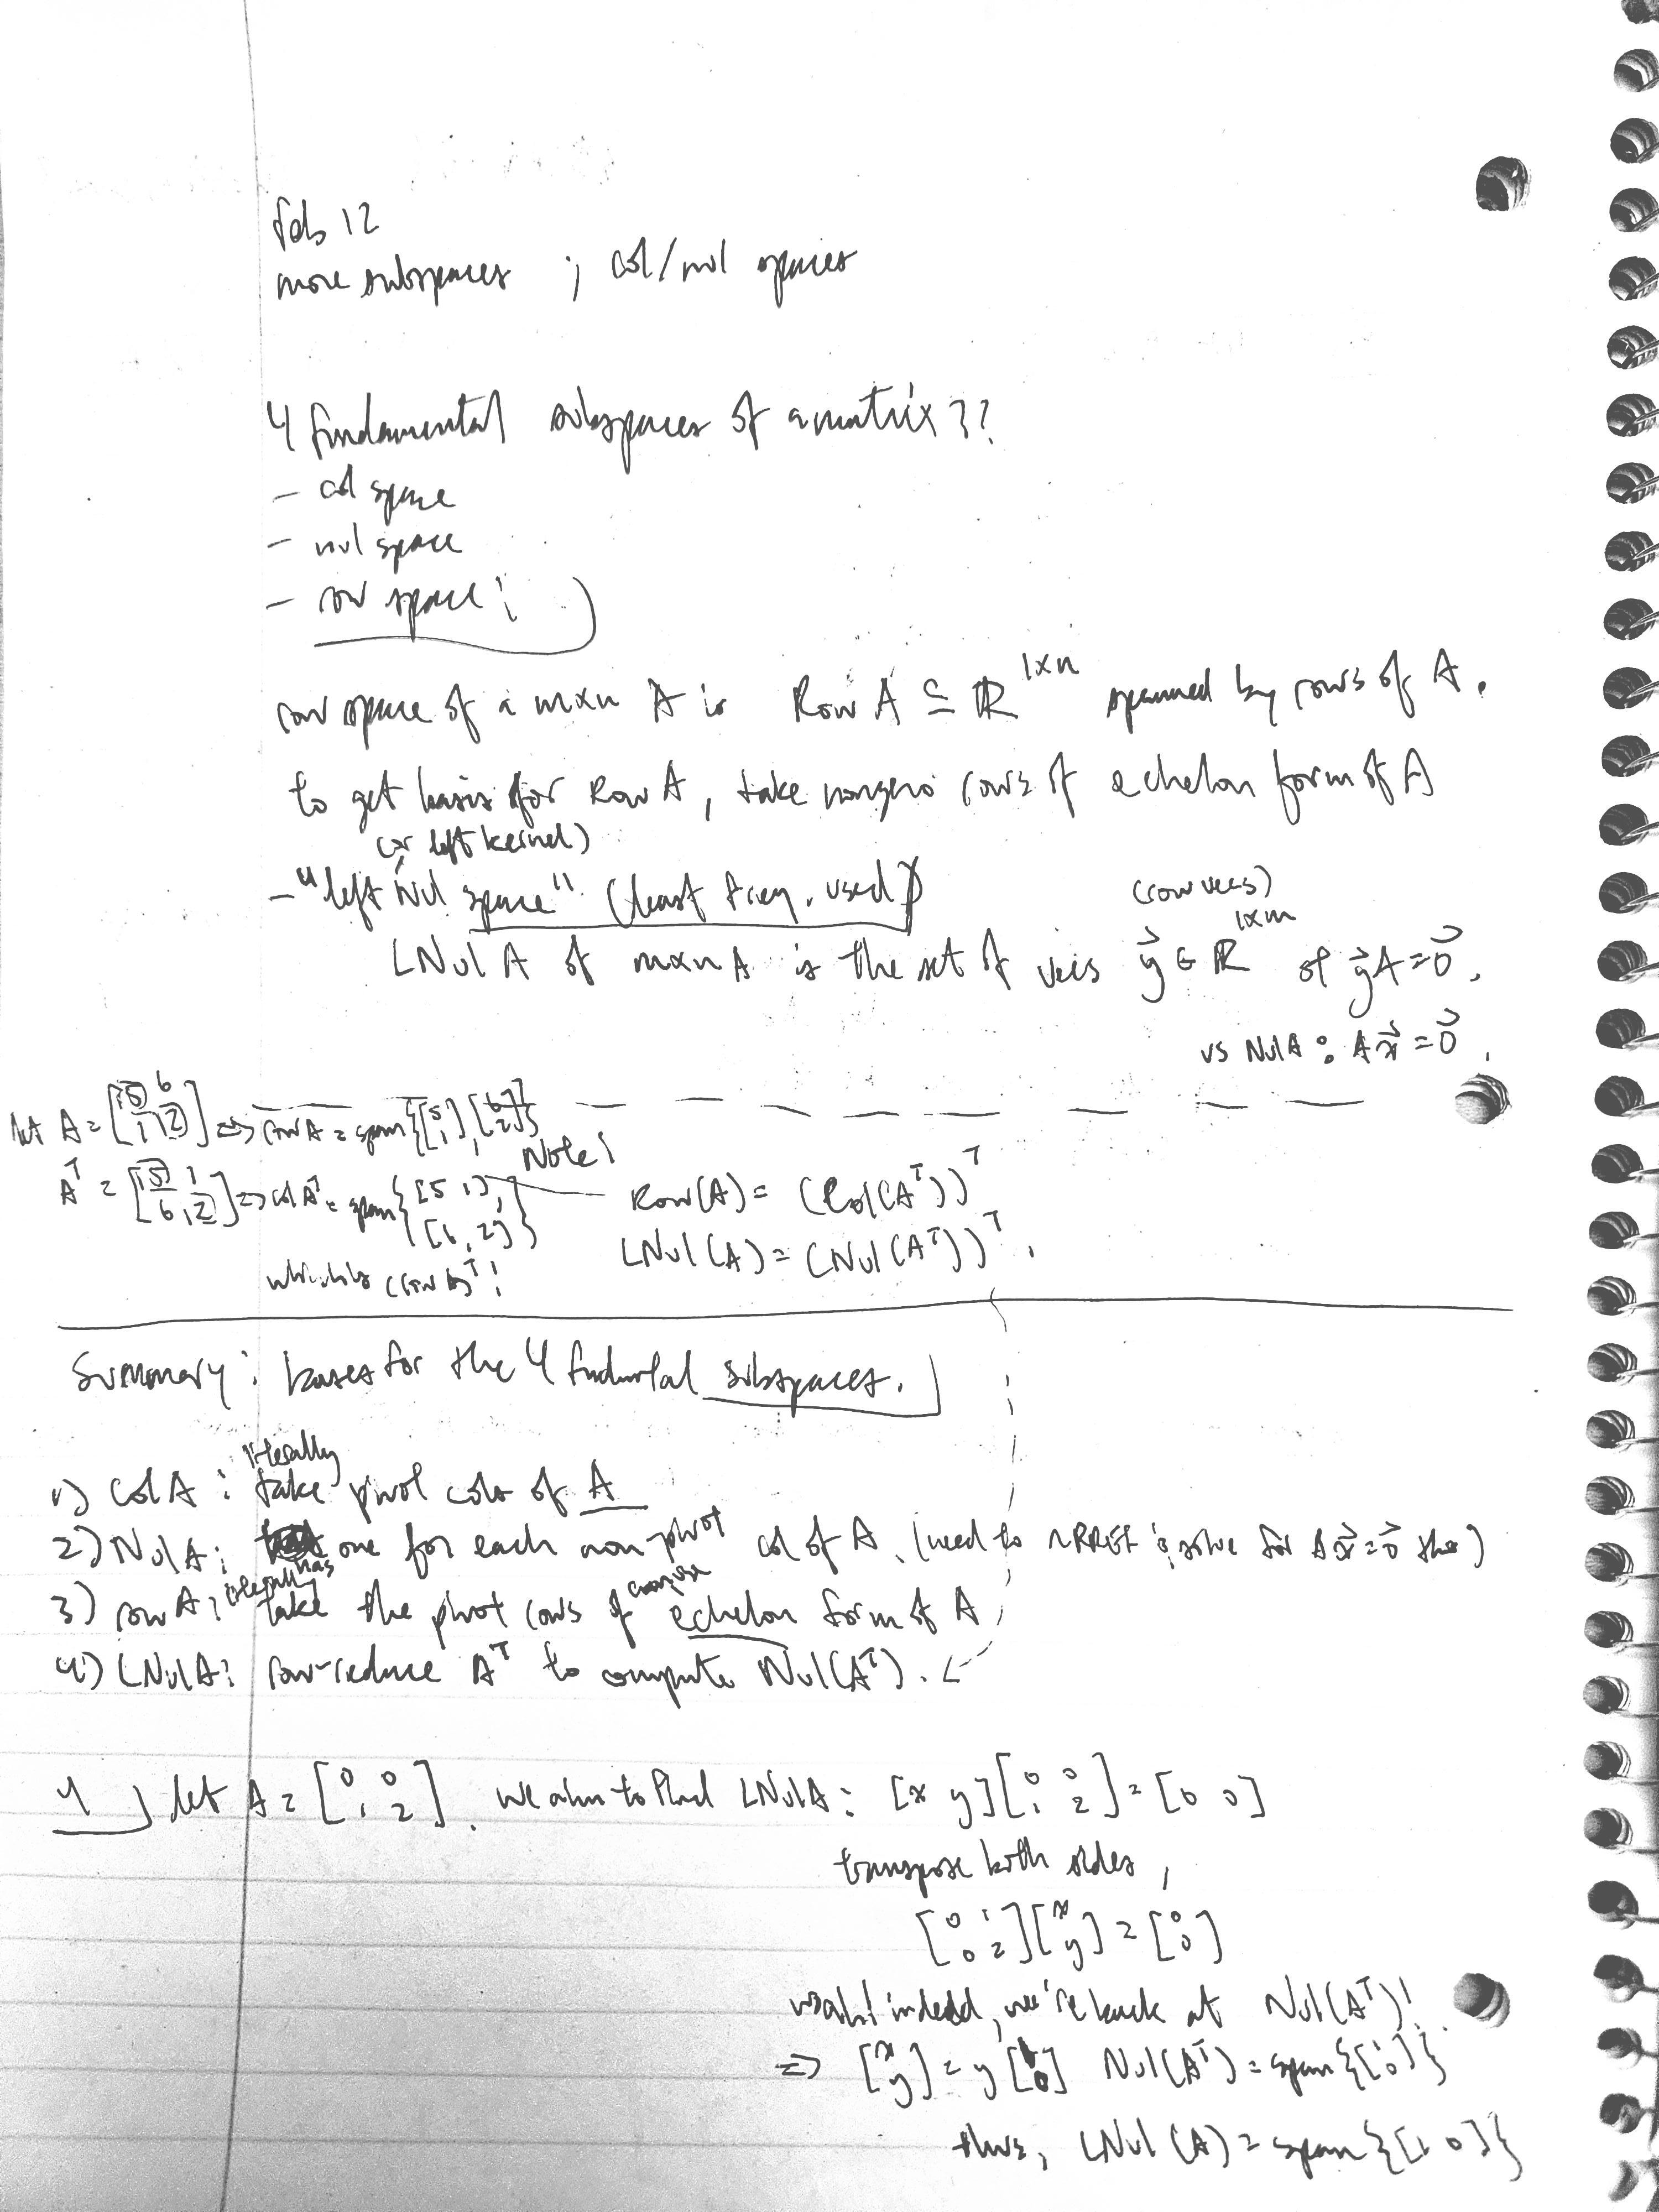 feb 12
more subspaces ; col/nul spaces
4 fundamental subspaces of a matrix??
- col space
- nul space
- row space:
row space of a m×n A is Row A ⊆ ℝ^{1×n} spanned by rows of A.
to get basis for Row A, take nonzero rows of echelon form of A
(or left kernel)
- "left Nul space" (least freq. used)
(row vecs)
LNul A of m×n A is the set of vecs y⃗ ∈ ℝ^{1×m} st y⃗A = 0⃗.
vs Nul A : Ax⃗ = 0⃗.
let A = [5 6; 1 2] => row A = span{[5; 1], [6; 2]}
A^T = [5 1; 6 2] => col A^T = span{[5 1], [6, 2]}
which is (row A)^T!
Note!
Row(A) = (Col(A^T))^T
LNul(A) = (Nul(A^T))^T.
Summary: bases for the 4 fundmtal subspaces.
1) Col A: literally take pivot cols of A
2) Nul A: has one for each non-pivot col of A. (need to ~RREF & solve for Ax⃗=0⃗ tho)
3) row A: literally take the pivot rows of echelon form of A
4) LNul A: row-reduce A^T to compute Nul(A^T).
4) let A = [0 0; 1 2]. we aim to find LNul A: [x y][0 0; 1 2] = [0 0]
transpose both sides,
[0 1; 0 2][x; y] = [0; 0]
woah! indeed, we're back at Nul(A^T)!
=> [x; y] = y[1; 0] Nul(A^T) = span{[1; 0]}
thus, LNul(A) = span{[1 0]}